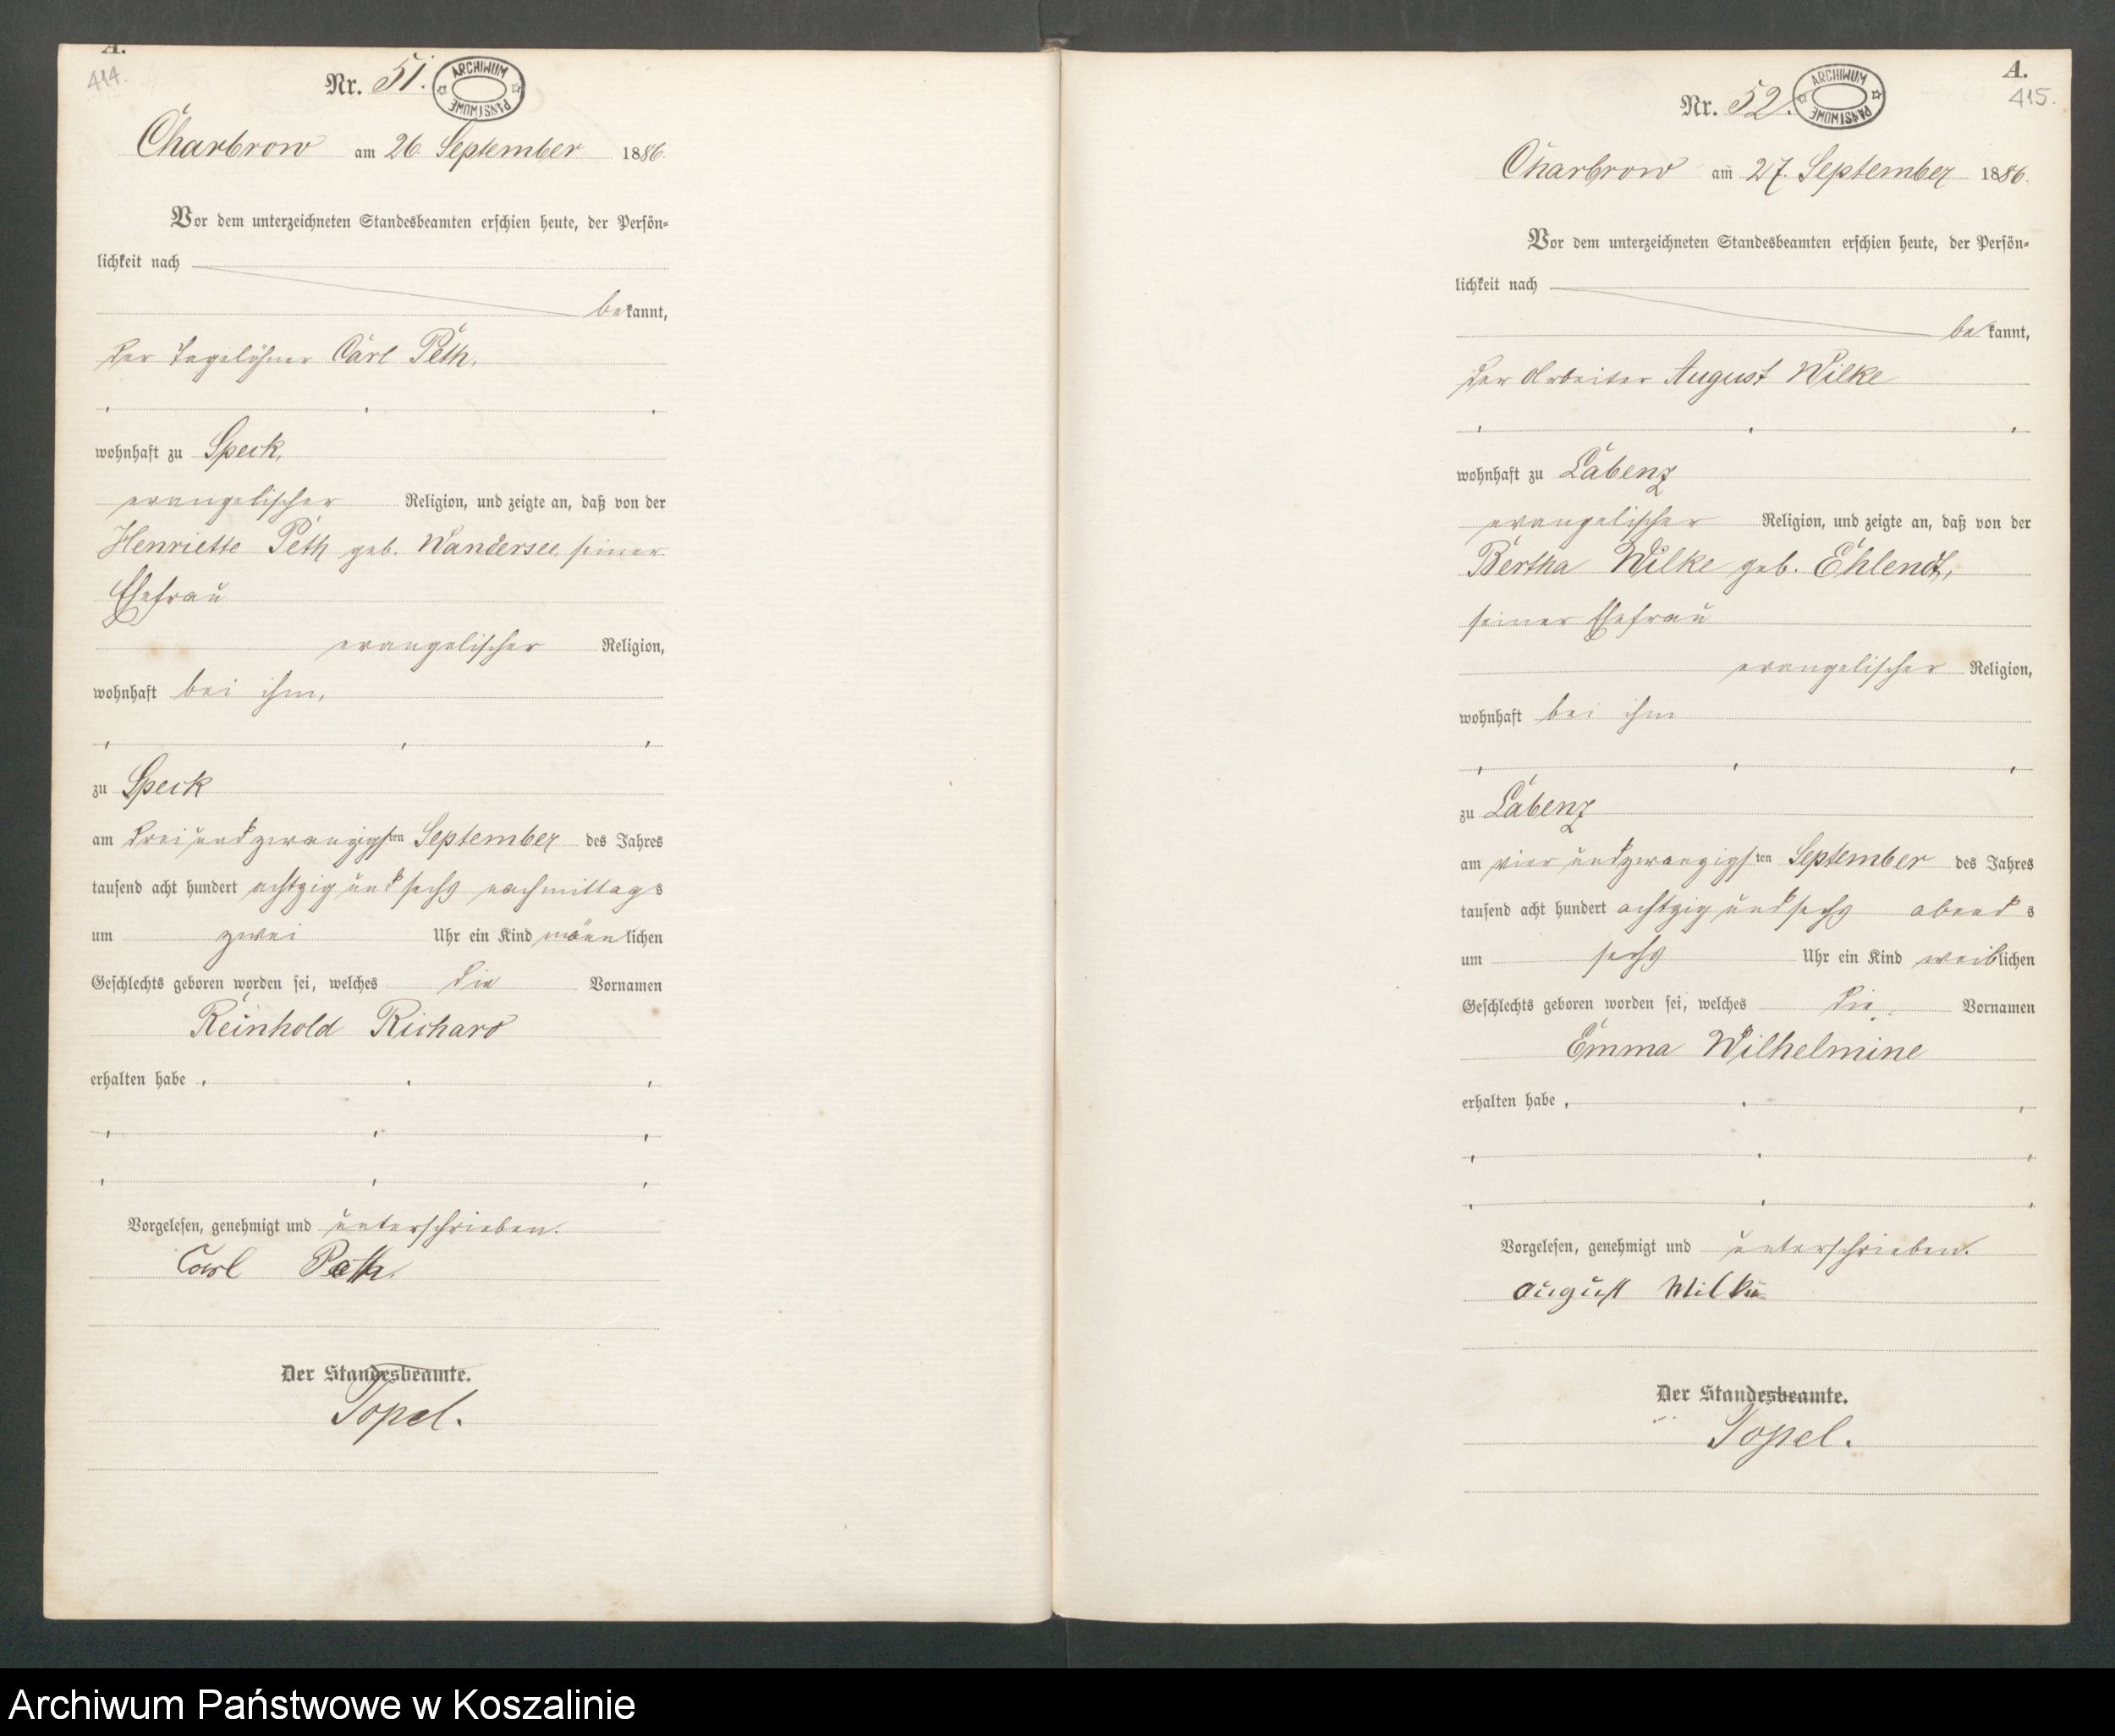 A.
414.
Nr. 51.
ARCHIWUM PAŃSTWOWE
Charbrow am 26. September 1886.
Vor dem unterzeichneten Standesbeamten erschien heute, der Persön=
lichkeit nach
bekannt,
der Tagelöhner Carl Peth,
wohnhaft zu Speck,
evangelischer Religion, und zeigte an, daß von der
Henriette Peth geb. Wandersee, seiner
Ehefrau
evangelischer Religion,
wohnhaft bei ihm,
zu Speck
am dreiundzwanzigsten September des Jahres
tausend acht hundert achtzig und sechs nachmittags
um zwei Uhr ein Kind männlichen
Geschlechts geboren worden sei, welches die Vornamen
Reinhold Richard
erhalten habe
Vorgelesen, genehmigt und unterschrieben.
Carl Peth.
Der Standesbeamte.
Topel.
A.
415.
Nr. 52.
ARCHIWUM PAŃSTWOWE
Charbrow am 27. September 1886.
Vor dem unterzeichneten Standesbeamten erschien heute, der Persön=
lichkeit nach
bekannt,
der Arbeiter August Wilke
wohnhaft zu Labenz
evangelischer Religion, und zeigte an, daß von der
Bertha Wilke geb. Ehlendt,
seiner Ehefrau
evangelischer Religion,
wohnhaft bei ihm
zu Labenz
am vierundzwanzigsten September des Jahres
tausend acht hundert achtzig und sechs abends
um sechs Uhr ein Kind weiblichen
Geschlechts geboren worden sei, welches die Vornamen
Emma Wilhelmine
erhalten habe
Vorgelesen, genehmigt und unterschrieben.
August Wilke
Der Standesbeamte.
Topel.
Archiwum Państwowe w Koszalinie